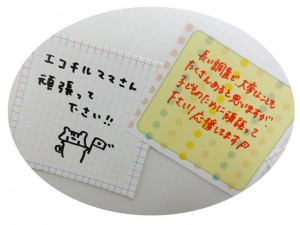 エコチルママさん
頑張って
下さい!!
長い調査で大変なことも
たくさんあると思いますが、
子どものために頑張って
下さい!応援してます